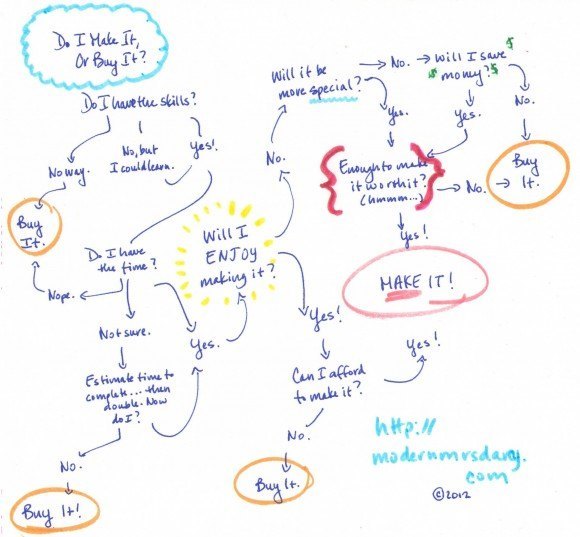 Do I Make It,
Or Buy It?
Do I have the skills?
No way.
No, but
I could learn.
Yes!
Buy
It.
Do I have
the time?
Nope.
Not sure.
Yes.
Estimate time to
complete... then
double. Now
do I?
No.
Buy It!
Will I
ENJOY
making it?
No.
Will it be
more special?
No.
Will I save
$ money? $
Yes.
Yes.
No.
Buy
It.
Enough to make
it worth it?
(hmmm...)
No.
Yes!
MAKE IT!
Yes!
Can I afford
to make it?
Yes!
No.
Buy It.
http://
modernmrsdarcy.
com
©2012